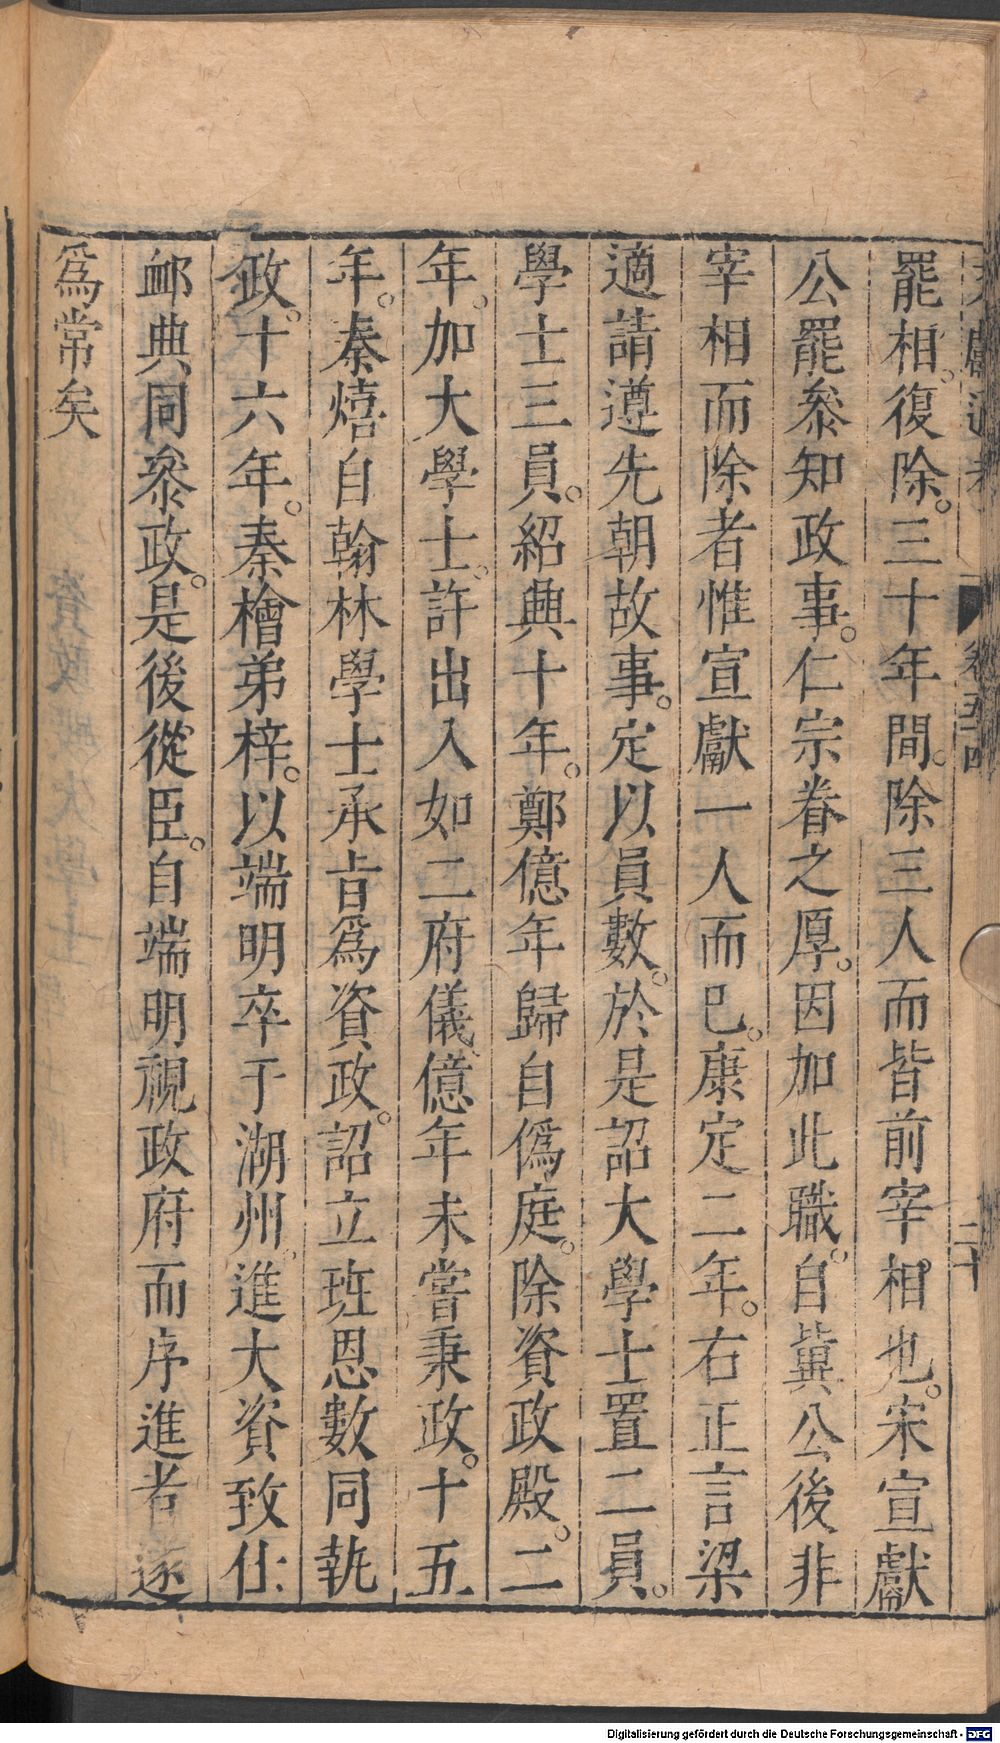 罷相。復除。三十年間。除三人而皆前宰相也。宋宣獻
公罷叅知政事。仁宗眷之厚。因加此職。自冀公後非
宰相而除者惟宣獻一人而已。康定二年。右正言梁
適請遵先朝故事。定以員數。於是詔大學士置二員。
學士三員。紹興十年。鄭億年歸自僞庭。除資政殿。二
年。加大學士。許出入如二府儀。億年未嘗秉政。十五
年。秦熺自翰林學士承旨爲資政。詔立班恩數同執
政。十六年。秦檜弟梓。以端明卒于湖州。進大資致仕
卹典同叅政。是後從臣。自端明視政府而序進者遂
爲常矣
卷五十四
二十
Digitalisierung gefördert durch die Deutsche Forschungsgemeinschaft - DFG